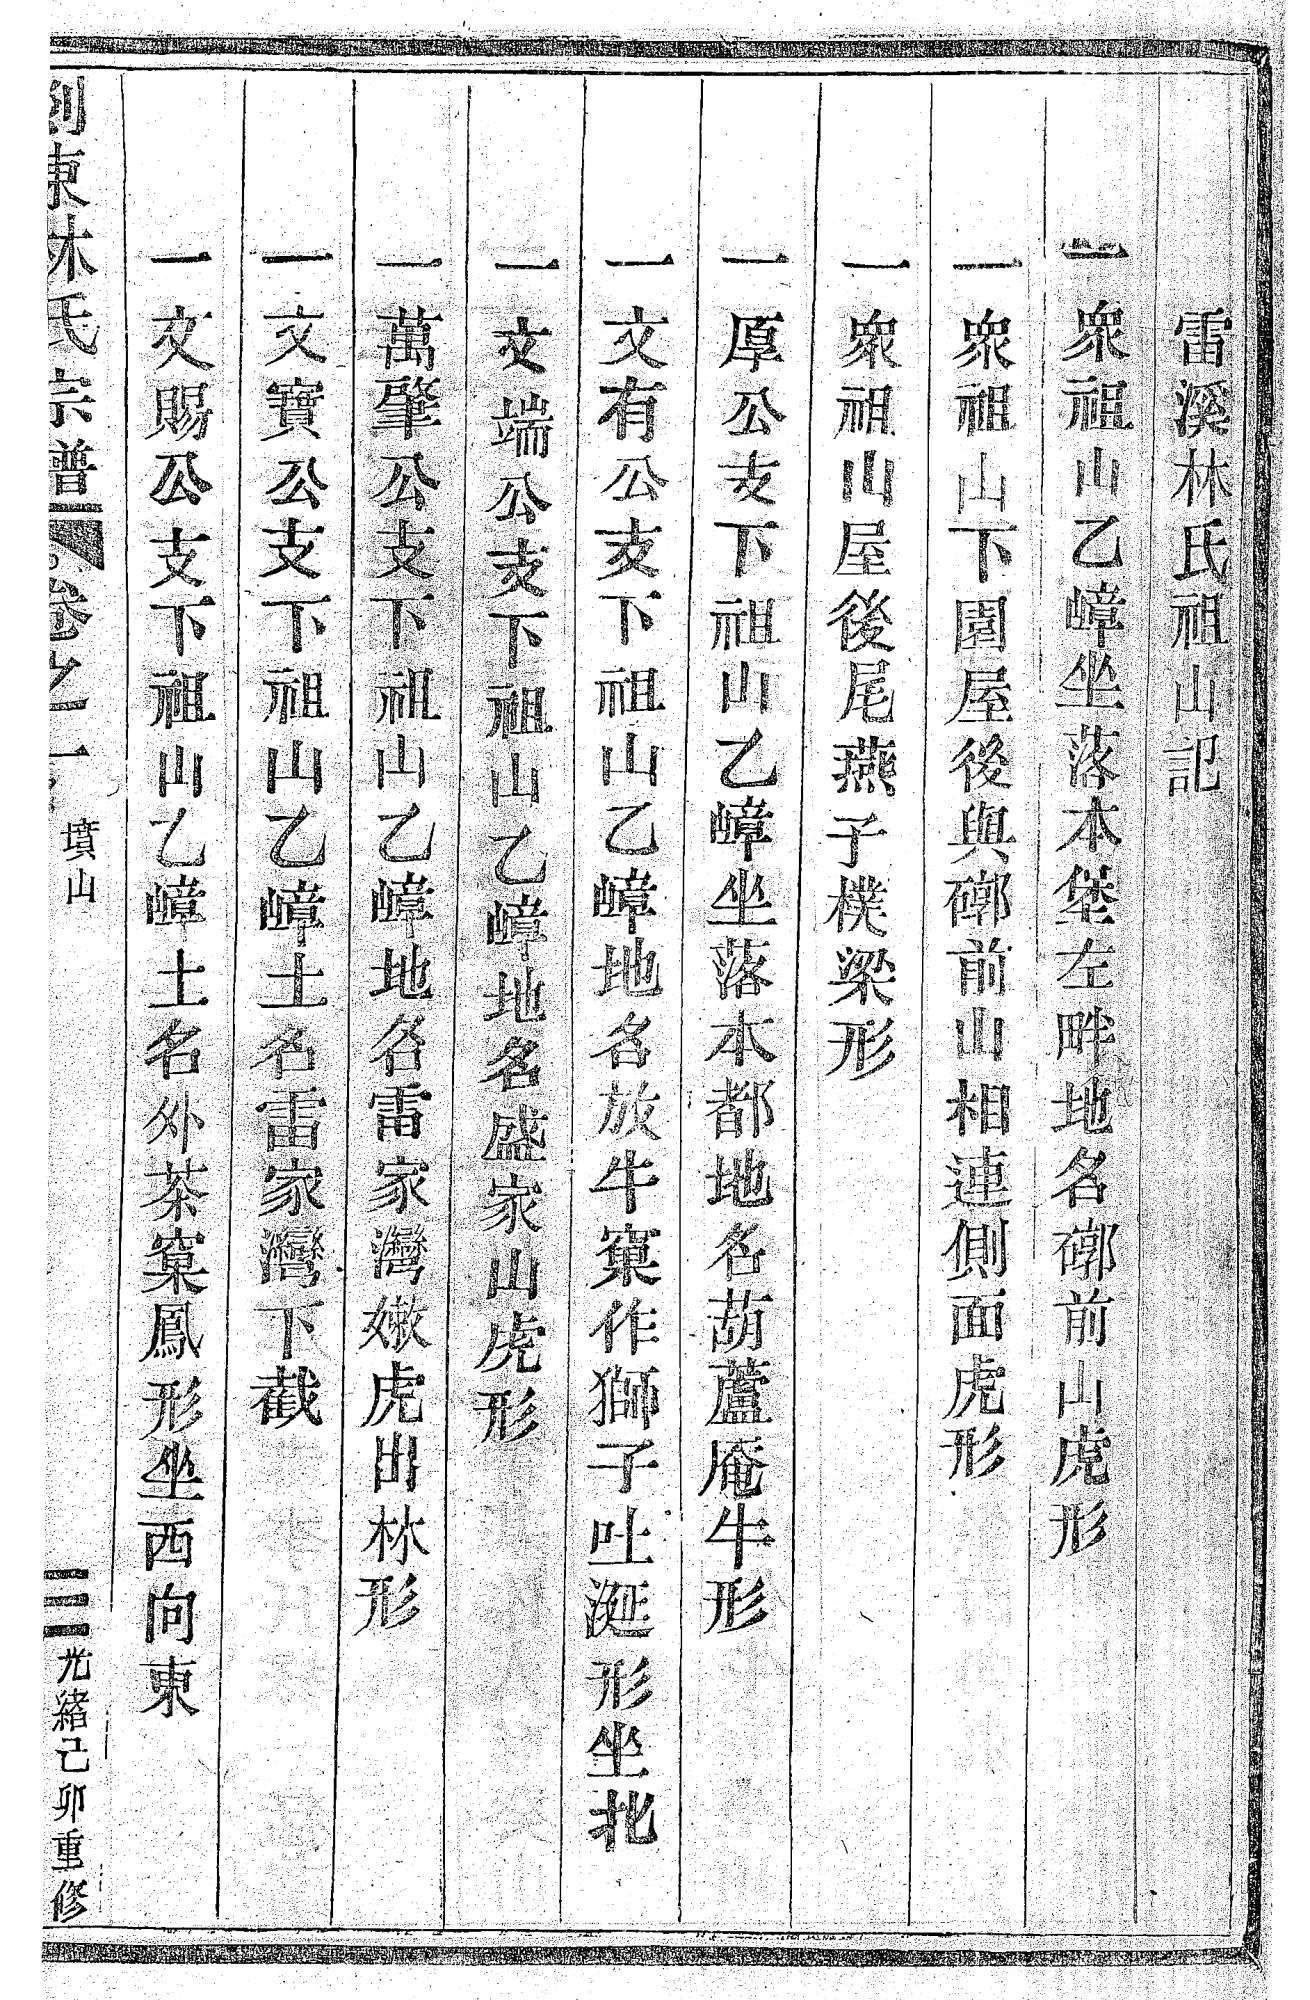 雷溪林氏祖山記
一衆祖山乙嶂坐落本堡左畔地名𥕖前山虎形
一衆祖山下園屋後與𥕖前山相連側面虎形
一衆祖山屋後尾燕子樸梁形
一厚公支下祖山乙嶂坐落本都地名葫蘆庵牛形
一文有公支下祖山乙嶂地名放牛窠作獅子吐涎形坐北
一文端公支下祖山乙嶂地名盛家山虎形
一萬肇公支下祖山乙嶂地名雷家灣嫩虎出林形
一文寶公支下祖山乙嶂土名雷家灣下截
一文賜公支下祖山乙嶂土名外茶窠鳳形坐西向東
東林氏宗譜 卷之一 墳山 三 光緒己卯重修